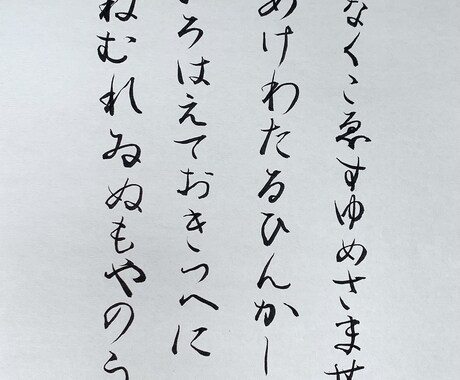 なくこゑすゆめさませ
あけわたるひんかし
いろはえておきつへに
ねむれゐぬもやのう